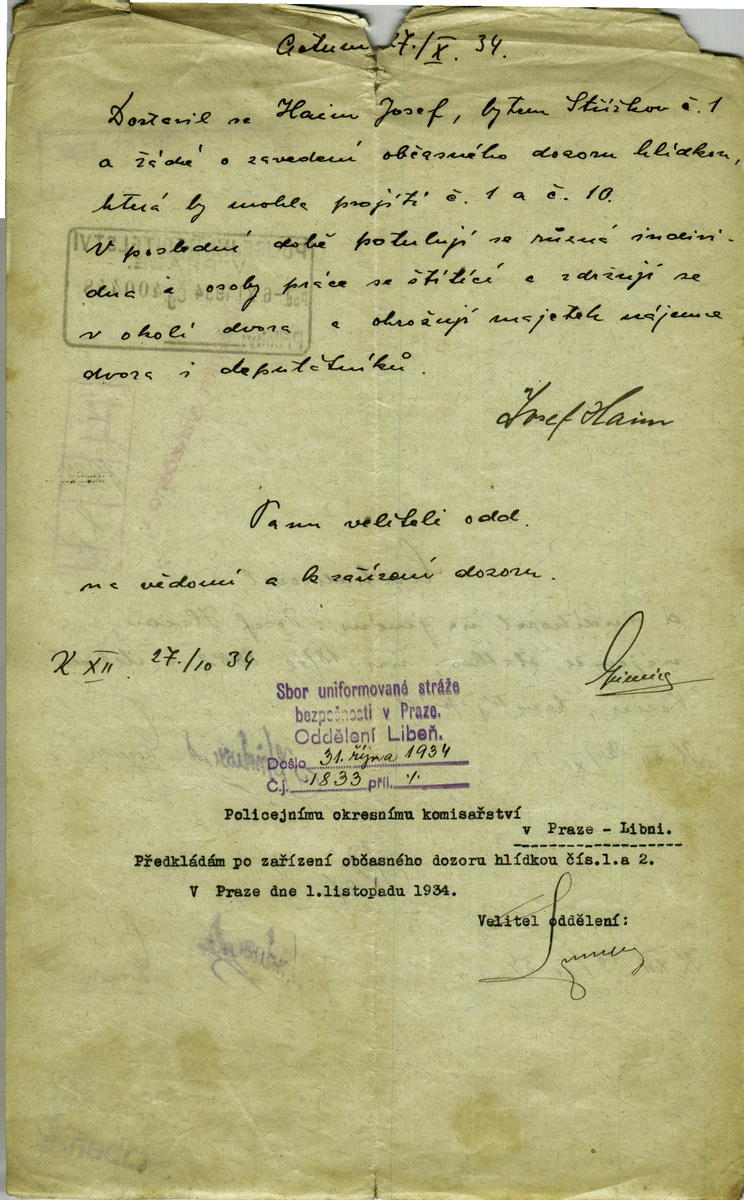 Actum 27./X. 34.
Dostavil se Haim Josef, bytem Střížkov č. 1
a žádá o zavedení občasného dozoru hlídkou,
která by mohla projíti č. 1 a č. 10.
V poslední době potulují se různá indivi-
dua i osoby práce se štítící a zdržují se
v okolí dvora a ohrožují majetek nájemce
dvora i deputátníků.
Josef Haim
Panu veliteli odd.
na vědomí a k zařízení dozoru.
K XII 27./10 34
Sbor uniformované stráže
bezpečnosti v Praze.
Oddělení Libeň.
Došlo 31. října 1934
Č.j. 1833 příl. %
Policejnímu okresnímu komisařství
v Praze - Libni.
Předkládám po zařízení občasného dozoru hlídkou čís.1.a 2.
V Praze dne 1.listopadu 1934.
Velitel oddělení: